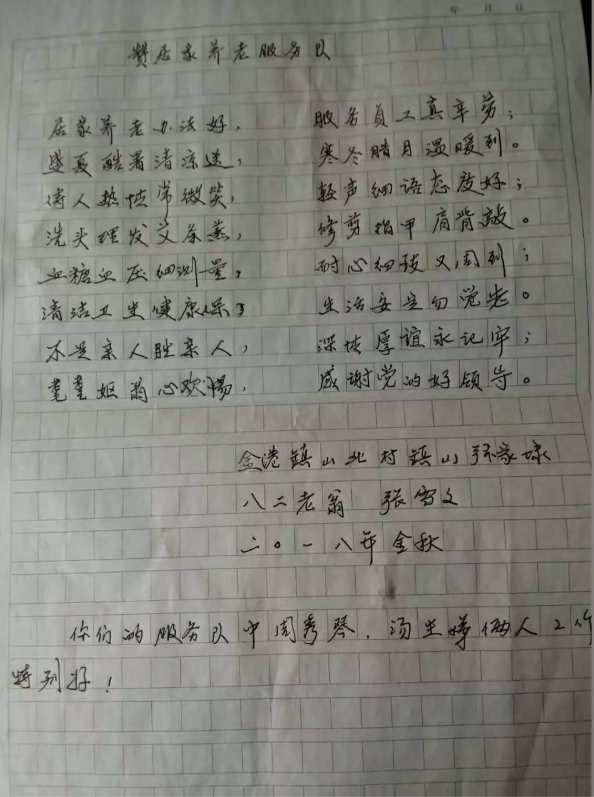 年 月 日
赞居家养老服务队
居家养老办法好, 服务员工真辛劳;
盛夏酷暑清凉送, 寒冬腊月温暖到。
待人热忱常微笑, 轻声细语态度好;
洗头理发又茶蕉, 修剪指甲肩背敲。
血糖血压细测量, 耐心细致又周到;
清洁卫生健康保, 生活安全勿觉老。
不是亲人胜亲人, 深情厚谊永记牢;
耄耋妪翁心欢畅, 感谢党的好领导。
金港镇山北村镇山
八二老翁 张雪文
二〇一八年金秋
你们的服务队中周秀琴、汤坐 俩人工作
特别好!